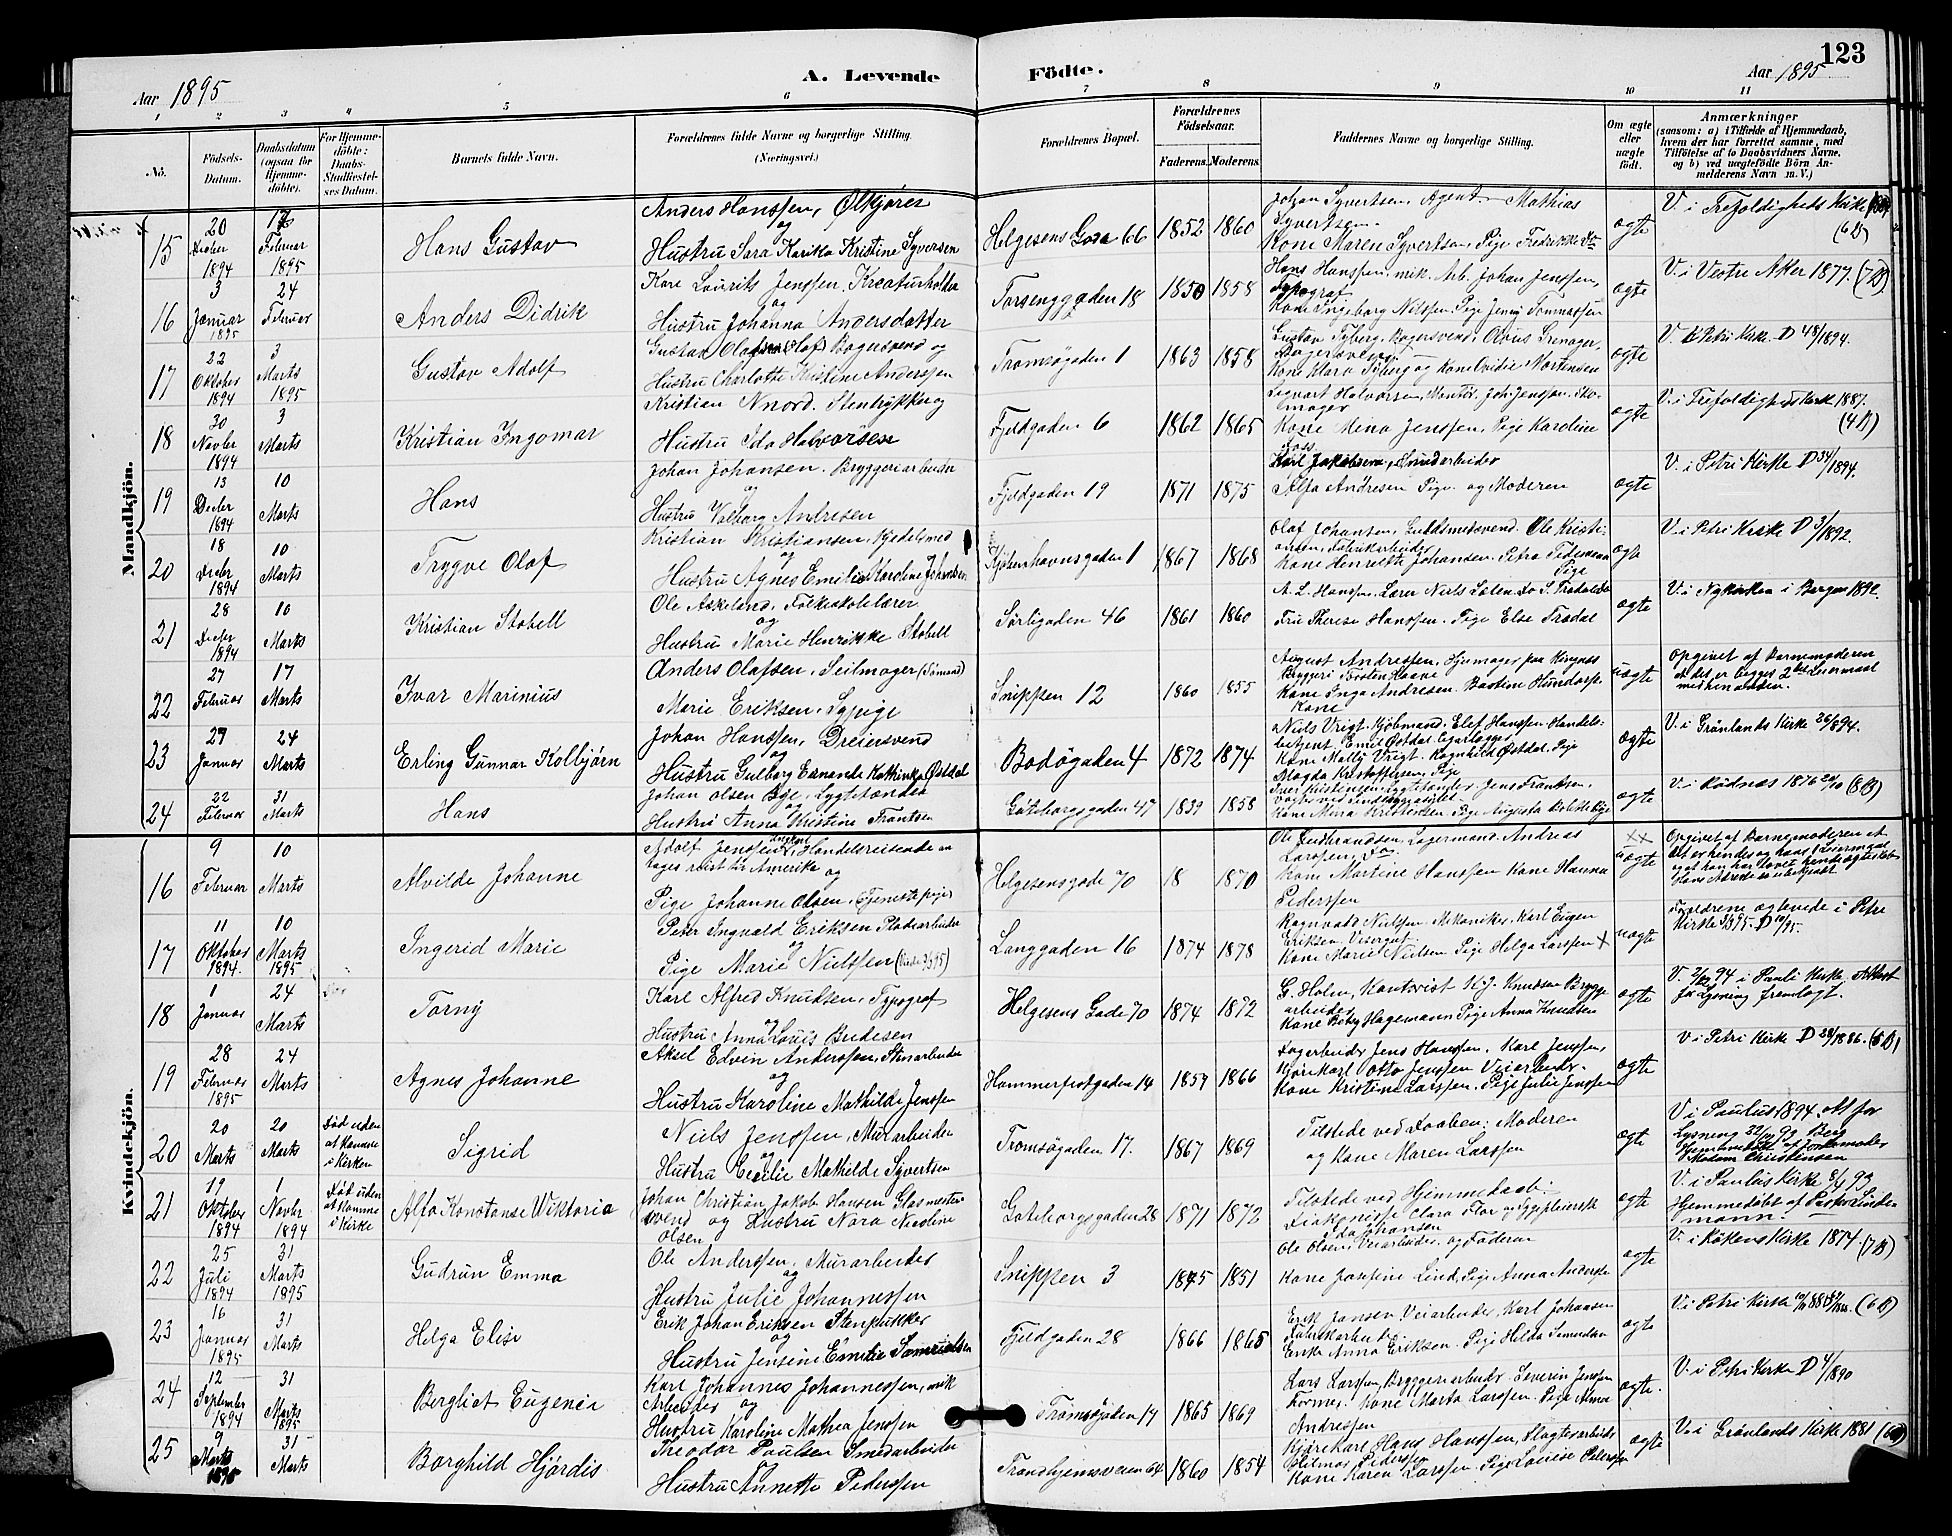 123
Aar 1895
A. Levende Födte.
Aar 1895
1 2 3 4 5 6 7 8 9 10 11
No.
Födsels-Datum.
Daabsdatum (ogsaa for Hjemme-döbte).
For Hjemme-döbte: Daabs-Stadfæstel-ses Datum.
Barnets fulde Navn.
Forældrenes fulde Navne og borgerlige Stilling. (Næringsvei.)
Forældrenes Bopæl.
Forældrenes Födselsaar.
Faderens. Moderens.
Faddernes Navne og borgerlige Stilling.
Om ægte eller uægte födt.
Anmærkninger (saasom: a) i Tilfælde af Hjemmedaab, hvem der har forrettet samme, med Tilföielse af to Daabsvidners Navne, og b) ved uægtefödte Börn An-melderens Navn m. V.)
Mandkjön.
15 20 Decber 1894 Februar 1895 Hans Gustav Anders Hanssen, Ölkjörer og Hustru Sara Karika Kristine Syversen Helgesens Gade 66 1852 1860 Johan Syvertsen, Agent Mathias Syvertsen. Kone Maren Syvertsen, Pige Fredrikke ægte V. i Trefoldigheds Kirke (6 B)
16 3 Januar 1895 24 Februar Anders Didrik Kare Laurits Jenssen, Kreaturholder og Hustru Johanna Andersdatter Torsenggaden 18 1850 1858 Hans Hanssen, mik. Arb. Johan Jenssen, Typograf Kone Ingeborg Nilssen, Pige Jenny Tomassen ægte V. i Vestre Aker 1877. (7 B)
17 22 Oktober 1894 3 Marts 1895 Gustav Adolf Gustav Olaf Bagersvend og Hustru Charlotte Kristine Anderssen Tromsögaden 1 1863 1858 Gustav Tyberg, Bagersvend, Kone Klara Tyberg og Kone Ovidie Mortensen ægte V. i Petri Kirke. D 48/1894.
18 30 Novbr 1894 3 Marts Kristian Ingomar Kristian Nnord. Stentrykker og Hustru Ida Halvorsen Fjeldgaden 6 1862 1865 Sigvart Halvorsen, Joh. Jenssen. Sko-mager Kone Mena Jenssen, Pige Karoline Foss ægte V. i Trefoldigheds Kirke 1887. (4 B)
19 13 Decber 1894 10 Marts Hans Johan Johansen. Bryggeriarbeider og Hustru Valborg Andresen Fjeldgaden 19 1871 1875 Karl Jakobsen, Grundarbeider Alfa Andresen Pige og Moderen ægte V. i Petri Kirke D 34/1894.
20 18 Decber 1894 10 Marts Trygve Olaf Kristian Kristiansen, Kjedelsmed og Hustru Agnes Emilie Karoline Johansen Kjöbenhavnsgaden 1 1867 1868 Olaf Johansen, Guldsmedsvend. Ole Kristi-ansen, Fabrikarbeider Kone Henriette Johansen. Petra Pedersen Pige ægte V. i Petri Kirke D 3/1892.
21 28 Decber 1894 10 Marts Kristian Stobell Ole Askeland, Folkeskolelærer og Hustru Marie Henrikke Stobell Sörligaden 46 1861 1860 A. L. Hanssen, Lærer Niels Sælen. Do S. Tradal Do Fru Therese Hanssen. Pige Else Tradal ægte V. i Nykirken i Bergen 1892.
22 27 Februar 17 Marts Ivar Marinius Anders Olafsen, Seilmager (Sömand) Marie Eriksen, Sypige Snippen 12 1860 1855 August Andressen, Hjulmager paa Ringnæs Bryggeri Torsten Haave Kone Inga Andresen. Bastine Hundorp. Kone uægte Opgivet af Barnemoderen at det er begges 2det Leiermaal med hinanden.
23 29 Januar 24 Marts Erling Gunnar Kolbjörn Johan Hanssen, Dreiersvend og Hustru Gulborg Esmande Kathinka Östdal Bodögaden 4 1872 1874 Niels Vrigt. Kjöbmand. Elef Hanssen Handels-betjent Emil Östdal Cigarlager Kone Mally Vrigt. Ragnhild Östdal. Pige Magda Kristoffersen, Pige ægte V. i Grönlands Kirke 26/894.
24 22 Februar 31 Marts Hans Johan Olsen Bye, Lygtetænder og Hustru Anna Kristine Frantsen Göteborggaden 47 1839 1858 Lygtetænder Jens Frantsen, Kone Mina Kristensen Pige Augusta ægte V. i Rödnæs 1876 24/10 (8 B)
Kvindekjön.
16 9 Februar 10 Marts Alvilde Johanne Adolf Jenssen, Handelsreisende angives reist til Amerika og Pige Johanne Olsen. (Tjenestepige) Helgesensgade 70 18 1870 Ole Gudbrandsen, Lagermand. Andreas Larssen, Do. Kone Martine Hanssen Kone Hanna Pederssen uægte Opgivet af Barnemoderen at det er hendes og hans 1 Leiermaal og at han har lovet hende ægteskab Hans Adresse er ubekjendt
17 11 Oktober 1894. 10 Marts 1895 Ingerid Marie Peter Ingvald Eriksen Pladsarbeider og Pige Marie Nielssen Langgaden 16 1874 1878 Ragnvald Nielssen, Mekaniker, Karl Eugen Eriksen Visergut Kone Marie Nielsen Pige Helga Larssen uægte Forældrene ægteviede i Petri Kirke
18 1 Januar 24 Marts Torny Karl Alfred Knudsen, Typograf og Hustru Anna Louis Budesen Helgesens Gade 70 1874 1872 G. Holm, Kontorist K. J. Knudsen Brygge-arbeider Kone Betsy Hagemann Pige Anna Knudsen ægte V. 2/12 94 i Pauli Kirke. Attest for Lysning fremlagt.
19 28 Februar 1895 24 Marts Agnes Johanne Aksel Edvin Anderssen, Stenarbeider og Hustru Karoline Mathilde Jenssen Hammerfestgaden 14 1857 1866 Lagerbeider Jens Hanssen. Karl Jenssen, Kjörekarl Otto Jenssen Veiarbeider. Kone Kristine Larssen. Pige Julie Jenssen ægte V. i Petri Kirke D 29/1886. (5 B)
20 20 Marts 20 Marts Död uden at komme i Kirken Sigrid Niels Jenssen, Murarbeider og Hustru Cecilie Mathilde Syvertsen Tromsögaden 17. 1867 1869 Tilstede ved Daaben: Moderen og Kone Maren Larssen ægte V. i Paulus 1894. Att for Lysning Hjemmedöbt af Jordemoder Madam Christensen
21 19 Oktober 1894 1 Novbr 1894 Död uden at komme i Kirke Alfa Konstanse Wiktoria Johan Christian Jakob Hansen Glasmester-svend og Hustru Nora Nicoline Olsen Göteborgsgaden 28 1871 1872 Tilstede ved Hjemmedaab: Diakonisse Clara Flor og Sygepleierske Ida Johansen ægte V. i Paulus Kirke 93 Hjemmedöbt af Pastor Linde-mann.
22 25 Juli 1894 31 Marts 1895 Gudrun Emma Ole Anderssen, Murarbeider og Hustru Julie Johannessen Snippen 3 1845 1851 Ole Olsen, Veiarbeider og Faderen Kone Josefine Lind, Pige Anna Anderssen ægte V. i Röken Kirke 1874. (7 B)
23 16 Januar 1895 31 Marts Helga Elise Erik Johan Eriksen Stenhukker og Hustru Jensine Emilie Samuelsen Fjeldgaden 28 1866 1865 Erik Jansen Veiarbeider, Karl Johansen Fabrikarbeider Enke Anna Eriksen. Pige Hilda Samuelsen ægte V. i Petri Kirke (6 B)
24 12 September 1894 31 Marts 1895 Bergliot Eugenie Karl Johannes Johannessen, mek Arbeider og Hustru Karoline Mathea Jenssen Tromsögaden 14 1865 1869 Lars Larssen, Bryggeriarbeider. Severin Jenssen Former. Kone Marta Larssen. Pige Alma Andressen ægte. V. i Petri Kirke D 4/1890
25 9 Marts 1895 31 Marts Borghild Hjördis Theodor Paulsen Smedarbeider og Hustru Annette Pederssen Trondhjemsveien 64 1860 1854 Kjörekarl Hans Hanssen, Slagteriarbeider Hilmar Pederssen Kone Karen Larssen. Pige Louise Peterssen ægte V. i Grönlands Kirke 1881